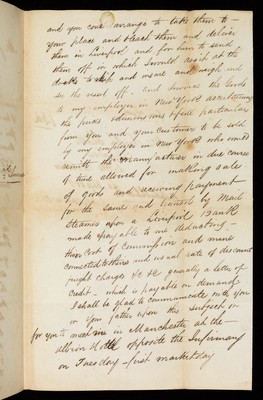 and you could arrange to take them to -
your place and bleach them and deliver
them in Liverpool and for him to send
them off in which I would assist at the
docks to ship and insure and weigh and
see the vessel off. and invoice the Goods
to my employer in New York ascertaining
the prices & dimensions & full particulars
from you and your customer to be sold
by my employer in New York who would
remitt the manufacturer in due course
of time allowed for making sale
of goods and receiving payment
for the same and transit by Mail
Steamer upon a Liverpool Bank
made payable to me deducting -
their Cost of Commission and
connected to this and usual rate of discount
freight charges &c &c generally a letter of
Credit - which is payable on demand
I shall be glad to communicate with you
or your father upon this subject or
for you to meet me in Manchester at the -
Albion Hotel opposite the Infirmary
on Tuesday - first market day